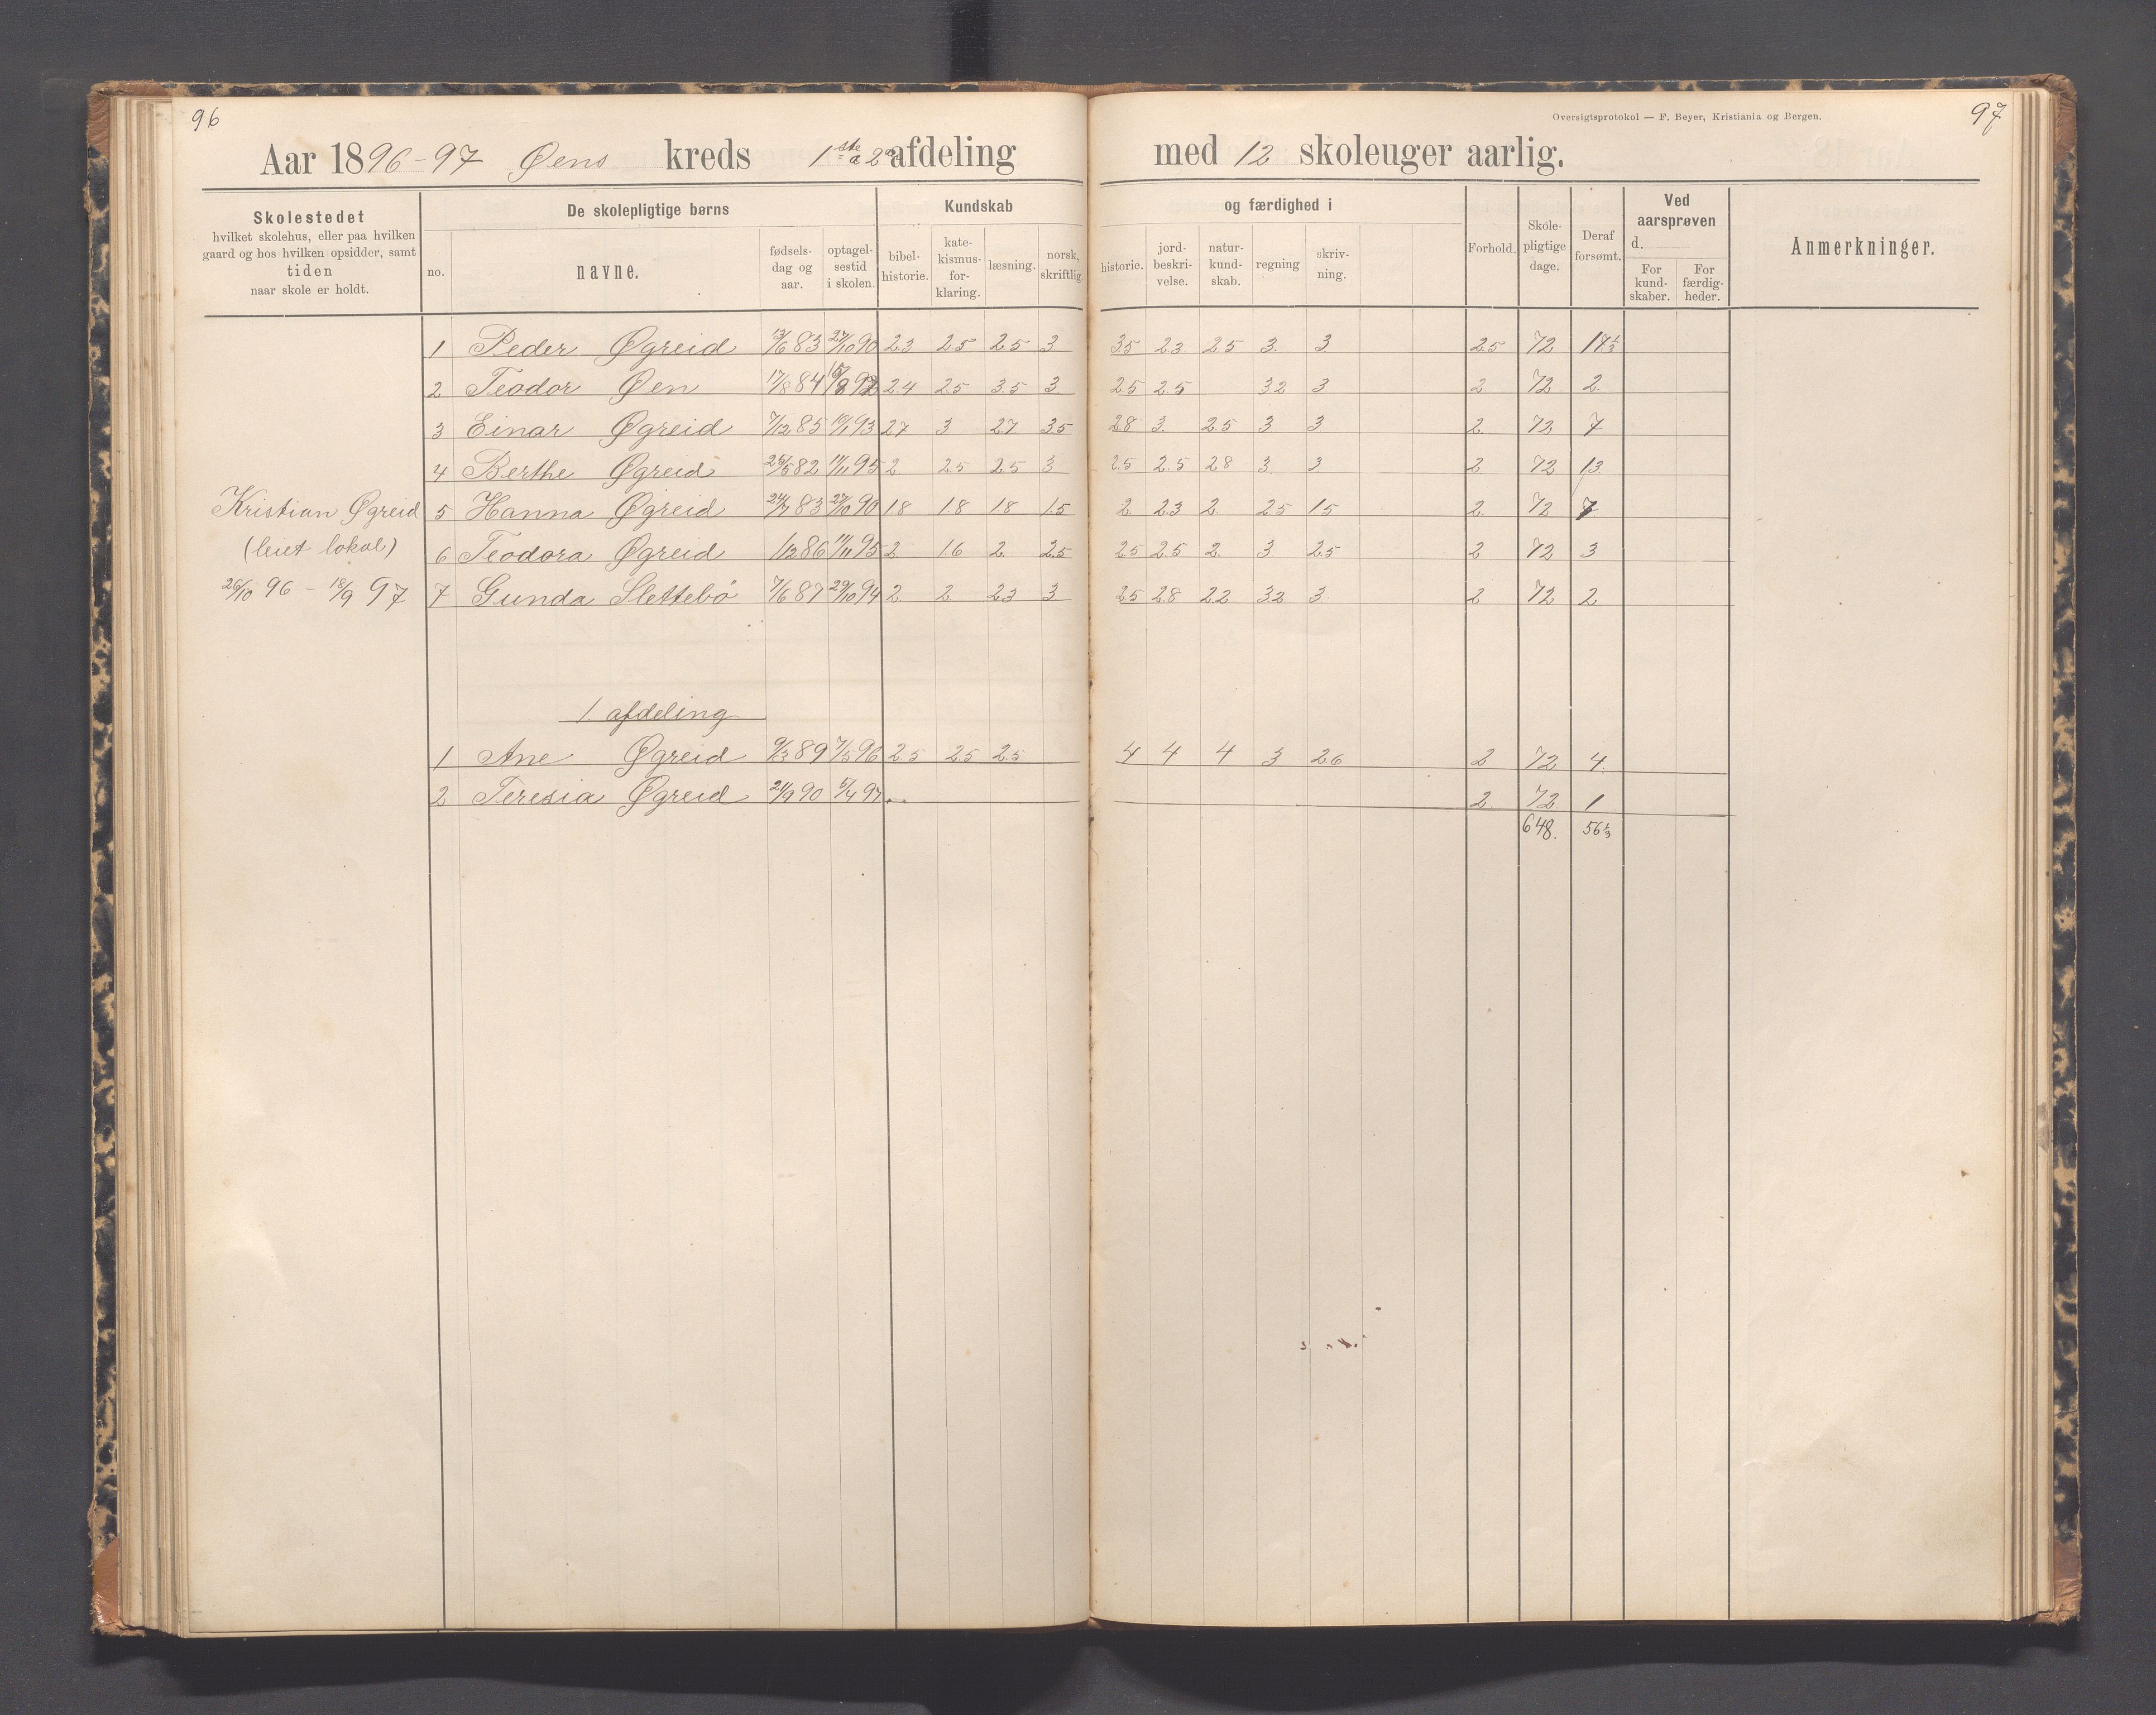 96
Aar 1896-97 Øens kreds 1ste a 2n afdeling
Skolestedet
hvilket skolehus, eller paa hvilken
gaard og hos hvilken opsidder, samt
tiden
naar skole er holdt.
De skolepligtige børns
no.
navne.
fødsels-
dag og
aar.
optagel-
sestid
i skolen.
Kundskab
bibel-
historie.
kate-
kismus-
for-
klaring.
læsning.
norsk,
skriftlig.
Oversigtsprotokol — F. Beyer, Kristiania og Bergen.
97
med 12 skoleuger aarlig.
og færdighed i
historie.
jord-
beskri-
velse.
natur-
kund-
skab.
regning
skriv-
ning.
Forhold.
Skole-
pligtige
dage.
Deraf
forsømt.
Ved
aarsprøven
d.
For
kund-
skaber.
For
færdig-
heder.
Anmerkninger.
1 Peder Øgreid 13/6 83 27/10 90 2.3 2.5 2.5 3 3.5 2.3 2.5 3 3 2.5 72 17 1/3
2 Teodor Øen 17/8 84 92 2.4 2.5 3.5 3 2.5 2.5 3.2 3 2 72 2
3 Einar Øgreid 7/12 85 19/1 93 2.7 3 2.7 3.5 2.8 3 2.5 3 3 2 72 7
4 Berthe Øgreid 26/5 82 11/11 95 2 2.5 2.5 3 2.5 2.5 2.8 3 3 2 72 13
Kristian Øgreid
(leiet lokal)
26/10 96 - 18/9 97
5 Hanna Øgreid 24/7 83 27/10 90 1.8 1.8 1.8 1.5 2 2.3 2 2.5 1.5 2 72 7
6 Teodora Øgreid 1/12 86 11/11 95 2 1.6 2 2.5 2.5 2.5 2 3 2.5 2 72 3
7 Gunda Slettebö 7/6 87 29/10 94 2 2 2.3 3 2.5 2.8 2.2 3.2 3 2 72 2
1. afdeling
1 Ane Øgreid 9/3 89 7/5 96 2.5 2.5 2.5 4 4 4 3 2.6 2 72 4
2 Teresia Øgreid 21/9 90 5/4 97 2 72 1
648. 56 1/3